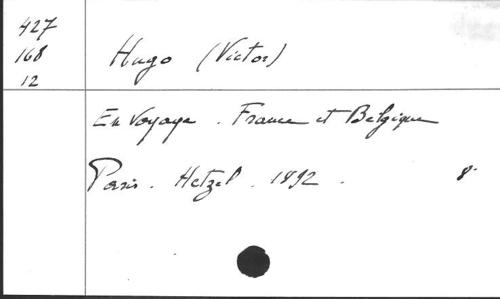 427
168
12
Hugo (Victor)
En Voyage. France et Belgique
Paris. Hetzel. 1892. 8°